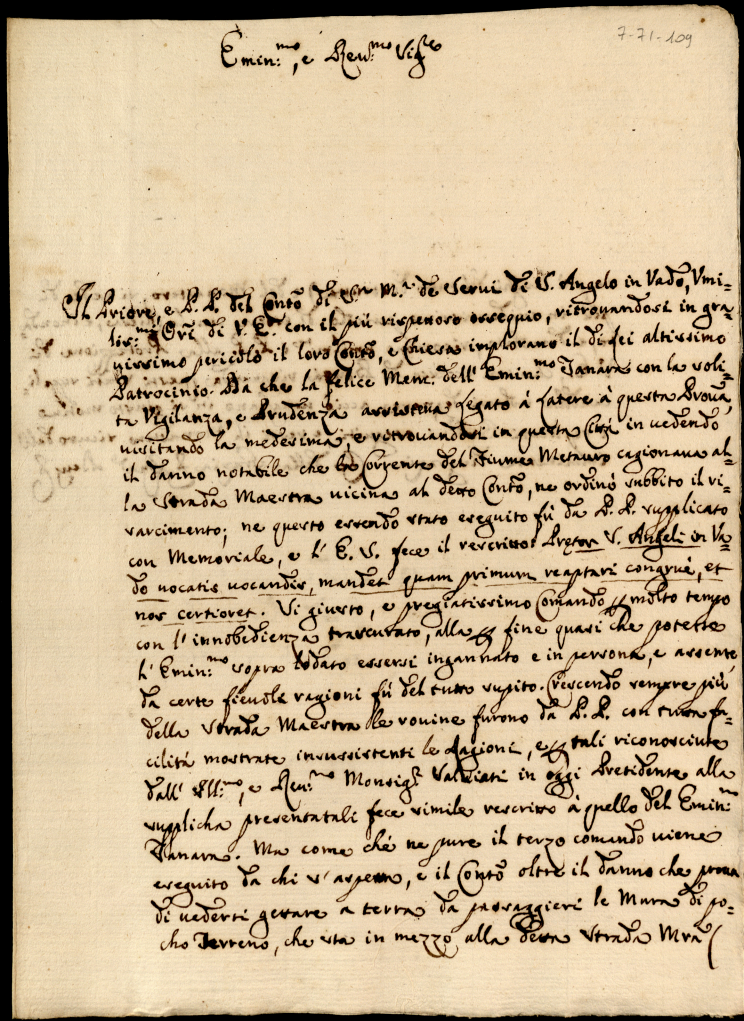 7-71-109
Emin:mo, e Reu:mo Sig.re
Il Priore, e P. P. del Conto di S.ta M.a de Servi di S. Angelo in Vado, Vmi=
liss:mi Ori di V. E. con il più rispettoso ossequio, ritrouandosi in gra=
uissimo pericolo il loro Conto, e Chiesa implorano il di Lei altissimo
Patrocinio. Da che la felice Mem: dell' Emin:mo Tanara con la soli=
ta Vigilanza, e Prudenza assisteua Legato à Latere à questa Proua,
uisitando la medesima, e ritrouandosi in questa Città in uedendo
il danno notabile che la Corrente del Fiume Metauro cagionaua al=
la Strada Maestra uicina al detto Conto, ne ordinò subbito il ri=
sarcimento; ne questo essendo stato eseguito fù da P. P. supplicato
con Memoriale, e l' E. S. fece il rescritto: Prętor S. Angeli in Va=
do uocatis uocandis, mandet quam primum reaptari congruè, et
nos certioret. Vi giusto, e pregiatissimo Comando p molto tempo
con l' innobedienza trascurato, alla p fine quasi che potesse
l' Emin:mo sopra lodato essersi ingannato e in persona, e assente,
da certe fieuole ragioni fù del tutto supito. Crescendo sempre più
della Strada Maestra le rouine furono da P. P. con tutta fa=
cilità mostrate insussistenti le Ragioni, e p tali riconosciute
dall' Ill:mo, e Reu:mo Monsig.r Saluiati in oggi Presidente alla
supplicha presentatali fece simile rescritto à quello del Emin:mo
Tanara. Ma come chè ne pure il terzo comando uiene
eseguito da chi s' aspetta, e il Conto oltre il danno che proua
di uedersi gettare a terra da passaggieri le Mura di po=
cho Terreno, che sta in mezzo alla detta Strada Mra (